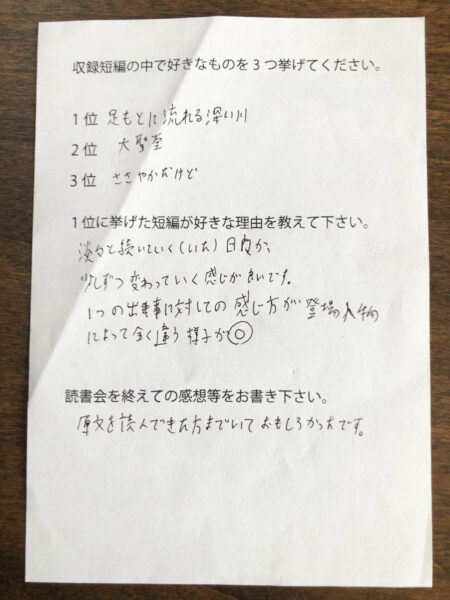 収録短編の中で好きなものを3つ挙げてください。
1位 足もとに流れる深い川
2位 大聖堂
3位 ささやかだけど
1位に挙げた短編が好きな理由を教えて下さい。
淡々と続いていく(いた)日々が、
少しずつ変わっていく感じが良いです。
1つの出来事に対しての感じ方が登場人物
によって全く違う様子が◎
読書会を終えての感想等をお書き下さい。
原文を読んできた方までいておもしろかったです。